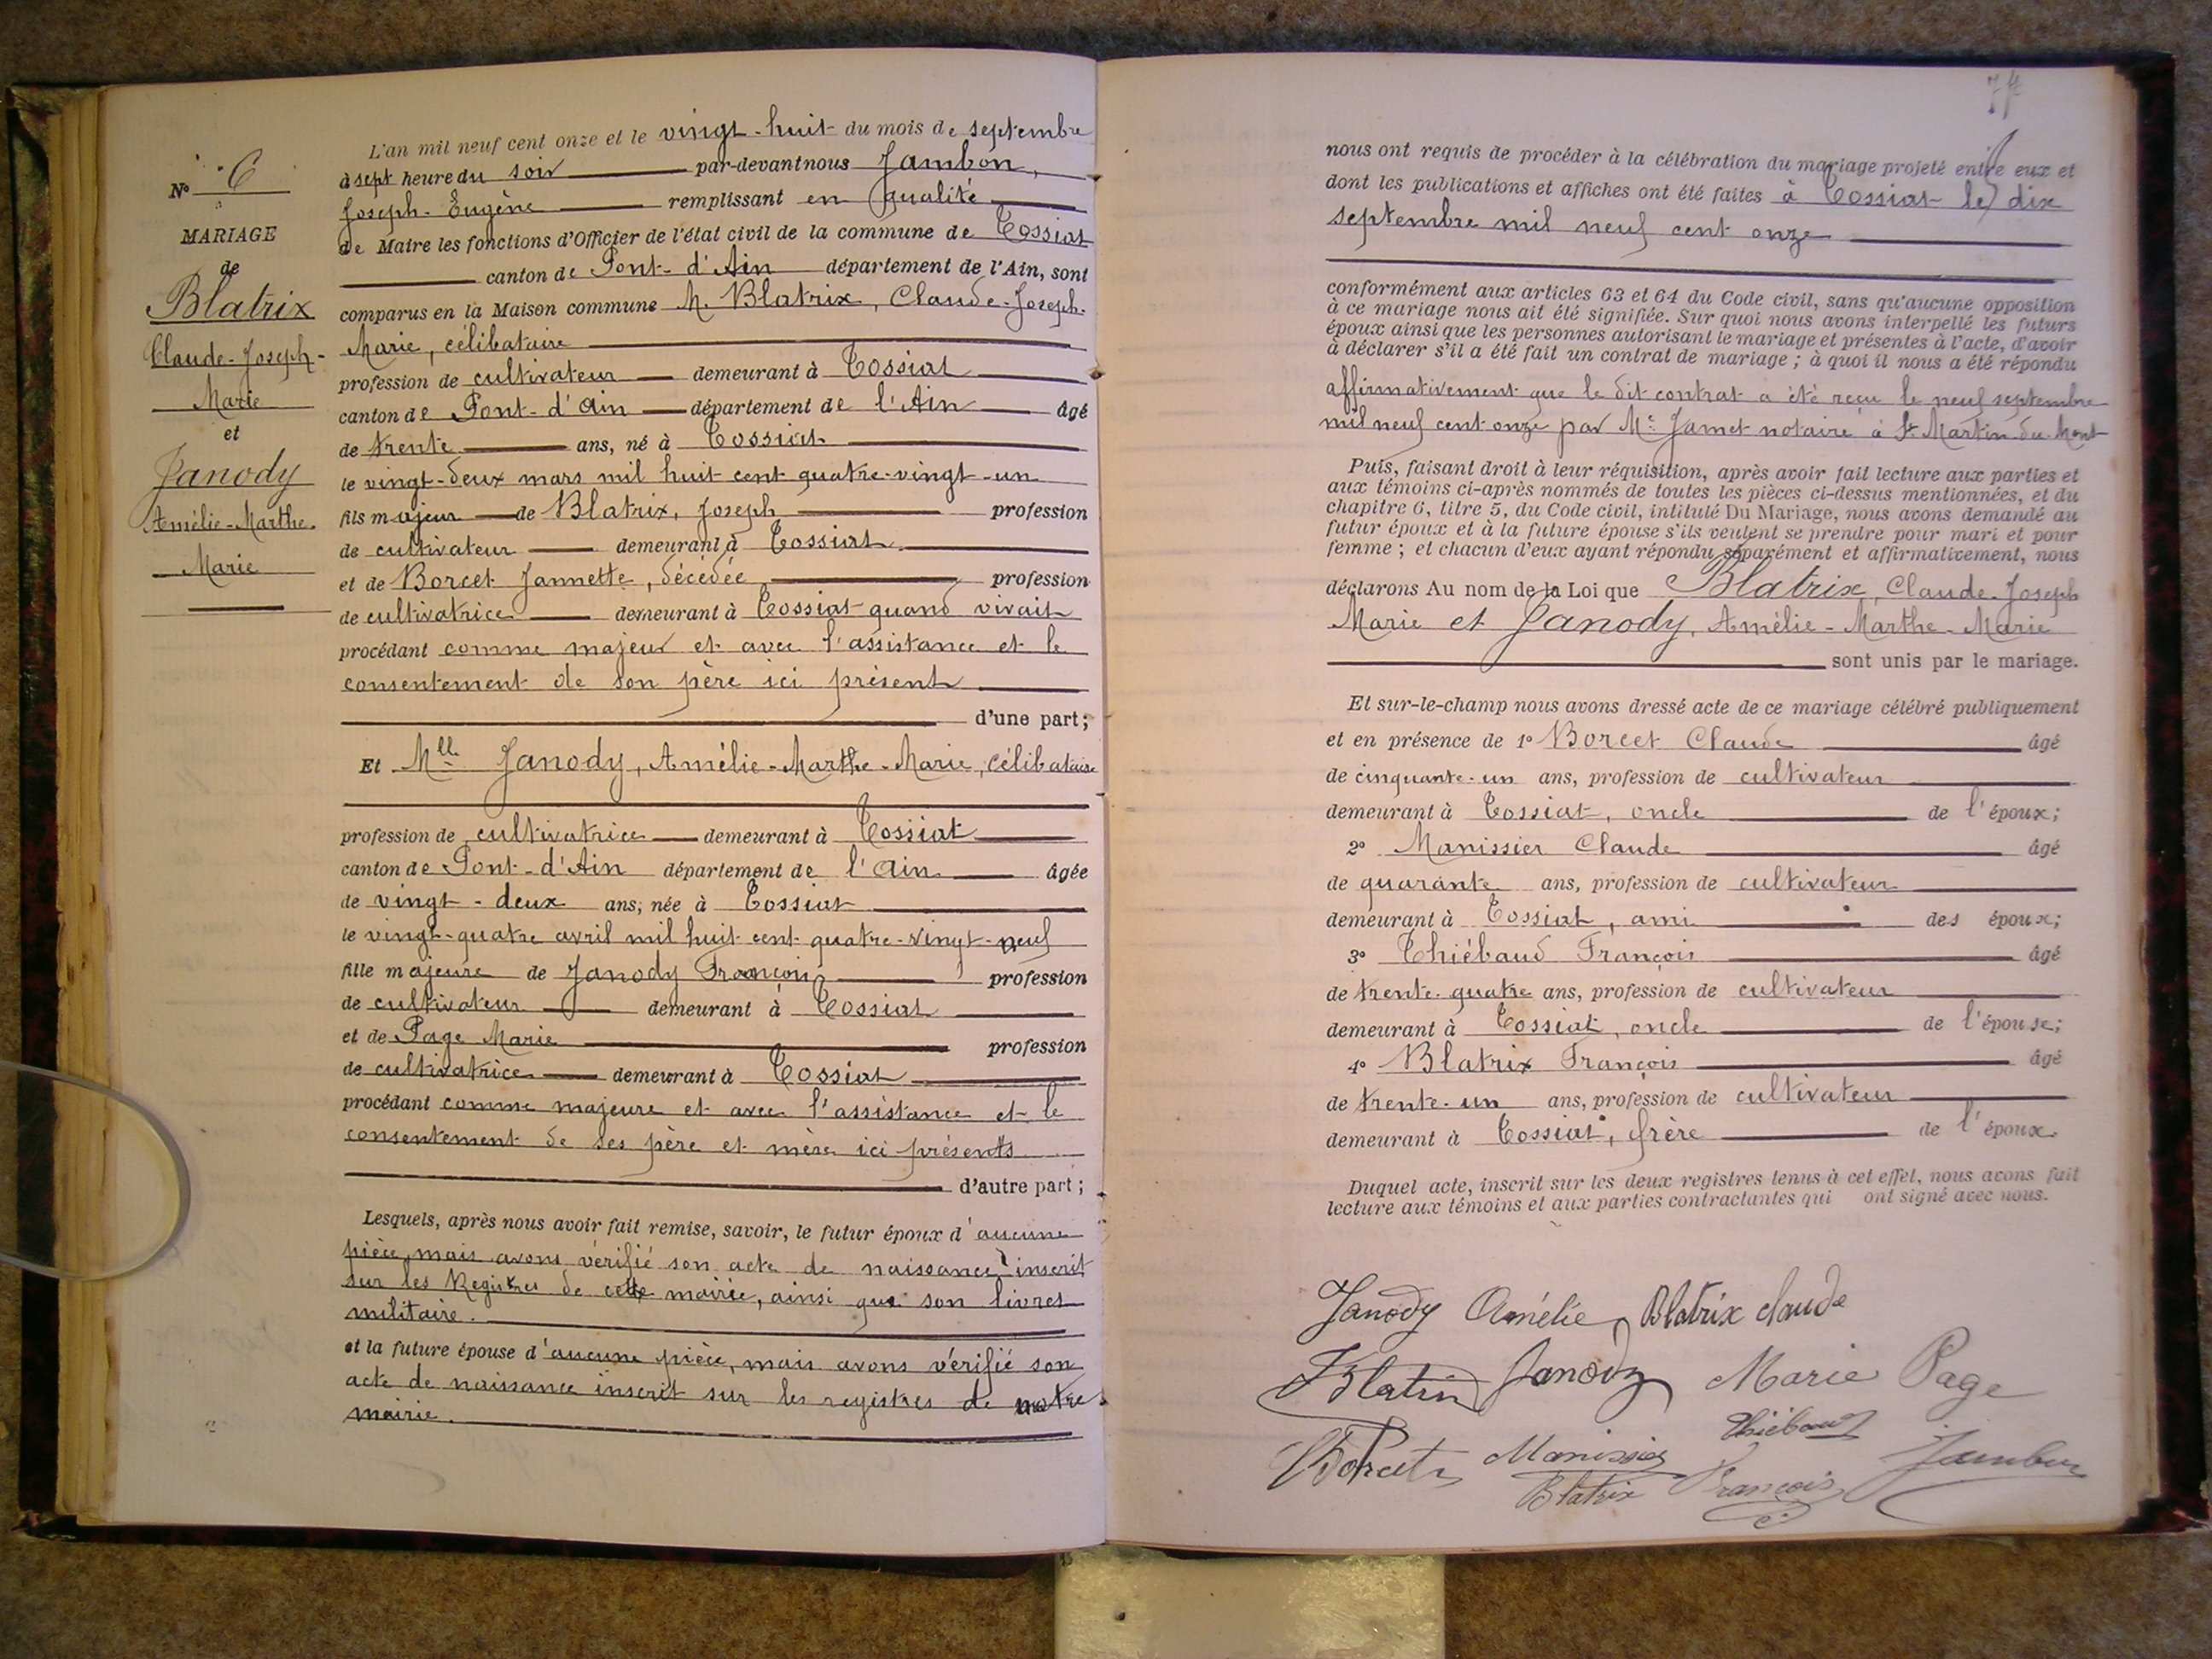 N° 6
MARIAGE
de
Blatrix
Claude-Joseph-
Marie
et
Janody
Amélie-Marthe-
Marie
L'an mil neuf cent onze et le vingt-huit du mois de septembre
à sept heure du soir par-devant nous Jambon,
Joseph-Eugène remplissant en qualité
de Maire les fonctions d'Officier de l'état civil de la commune de Tossiat
canton de Pont-d'Ain département de l'Ain, sont
comparus en la Maison commune M. Blatrix, Claude-Joseph-
Marie, célibataire
profession de cultivateur demeurant à Tossiat
canton de Pont-d'Ain département de l'Ain âgé
de trente ans, né à Tossiat
le vingt-deux mars mil huit cent quatre-vingt-un
fils majeur de Blatrix, Joseph profession
de cultivateur demeurant à Tossiat
et de Borcet Jannette, décédée profession
de cultivatrice demeurant à Tossiat quand vivait
procédant comme majeur et avec l'assistance et le
consentement de son père ici présent
d'une part;
Et Mlle Janody, Amélie-Marthe-Marie, célibataire
profession de cultivatrice demeurant à Tossiat
canton de Pont-d'Ain département de l'Ain âgée
de vingt-deux ans, née à Tossiat
le vingt-quatre avril mil huit cent quatre-vingt-neuf
fille majeure de Janody François profession
de cultivateur demeurant à Tossiat
et de Page Marie profession
de cultivatrice demeurant à Tossiat
procédant comme majeure et avec l'assistance et le
consentement de ses père et mère ici présents
d'autre part;
Lesquels, après nous avoir fait remise, savoir, le futur époux d'aucune
pièce, mais avons vérifié son acte de naissance inscrit
sur les Registres de cette mairie, ainsi que son livret
militaire.
et la future épouse d'aucune pièce, mais avons vérifié son
acte de naissance inscrit sur les registres de notre
mairie.
nous ont requis de procéder à la célébration du mariage projeté entre eux et
dont les publications et affiches ont été faites à Tossiat le dix
septembre mil neuf cent onze
conformément aux articles 63 et 64 du Code civil, sans qu'aucune opposition
à ce mariage nous ait été signifiée. Sur quoi nous avons interpellé les futurs
époux ainsi que les personnes autorisant le mariage et présentes à l'acte, d'avoir
à déclarer s'il a été fait un contrat de mariage; à quoi il nous a été répondu
affirmativement que le dit contrat a été reçu le neuf septembre
mil neuf cent onze par Me Jamet notaire à St Martin-du-Mont
Puis, faisant droit à leur réquisition, après avoir fait lecture aux parties et
aux témoins ci-après nommés de toutes les pièces ci-dessus mentionnées, et du
chapitre 6, titre 5, du Code civil, intitulé Du Mariage, nous avons demandé au
futur époux et à la future épouse s'ils veulent se prendre pour mari et pour
femme; et chacun d'eux ayant répondu séparément et affirmativement, nous
déclarons Au nom de la Loi que Blatrix, Claude-Joseph
Marie et Janody, Amélie-Marthe-Marie
sont unis par le mariage.
Et sur-le-champ nous avons dressé acte de ce mariage célébré publiquement
et en présence de 1° Borcet Claude âgé
de cinquante-un ans, profession de cultivateur
demeurant à Tossiat, oncle de l'époux;
2° Manissier Claude âgé
de quarante ans, profession de cultivateur
demeurant à Tossiat, ami des époux;
3° Thiébaud François âgé
de trente-quatre ans, profession de cultivateur
demeurant à Tossiat, oncle de l'épouse;
4° Blatrix François âgé
de trente-un ans, profession de cultivateur
demeurant à Tossiat, frère de l'époux.
Duquel acte, inscrit sur les deux registres tenus à cet effet, nous avons fait
lecture aux témoins et aux parties contractantes qui ont signé avec nous.
Janody Amélie Blatrix claude
Blatrix Janody Marie Page
Borcet Manissier Thiébaud Jambon
Blatrix François